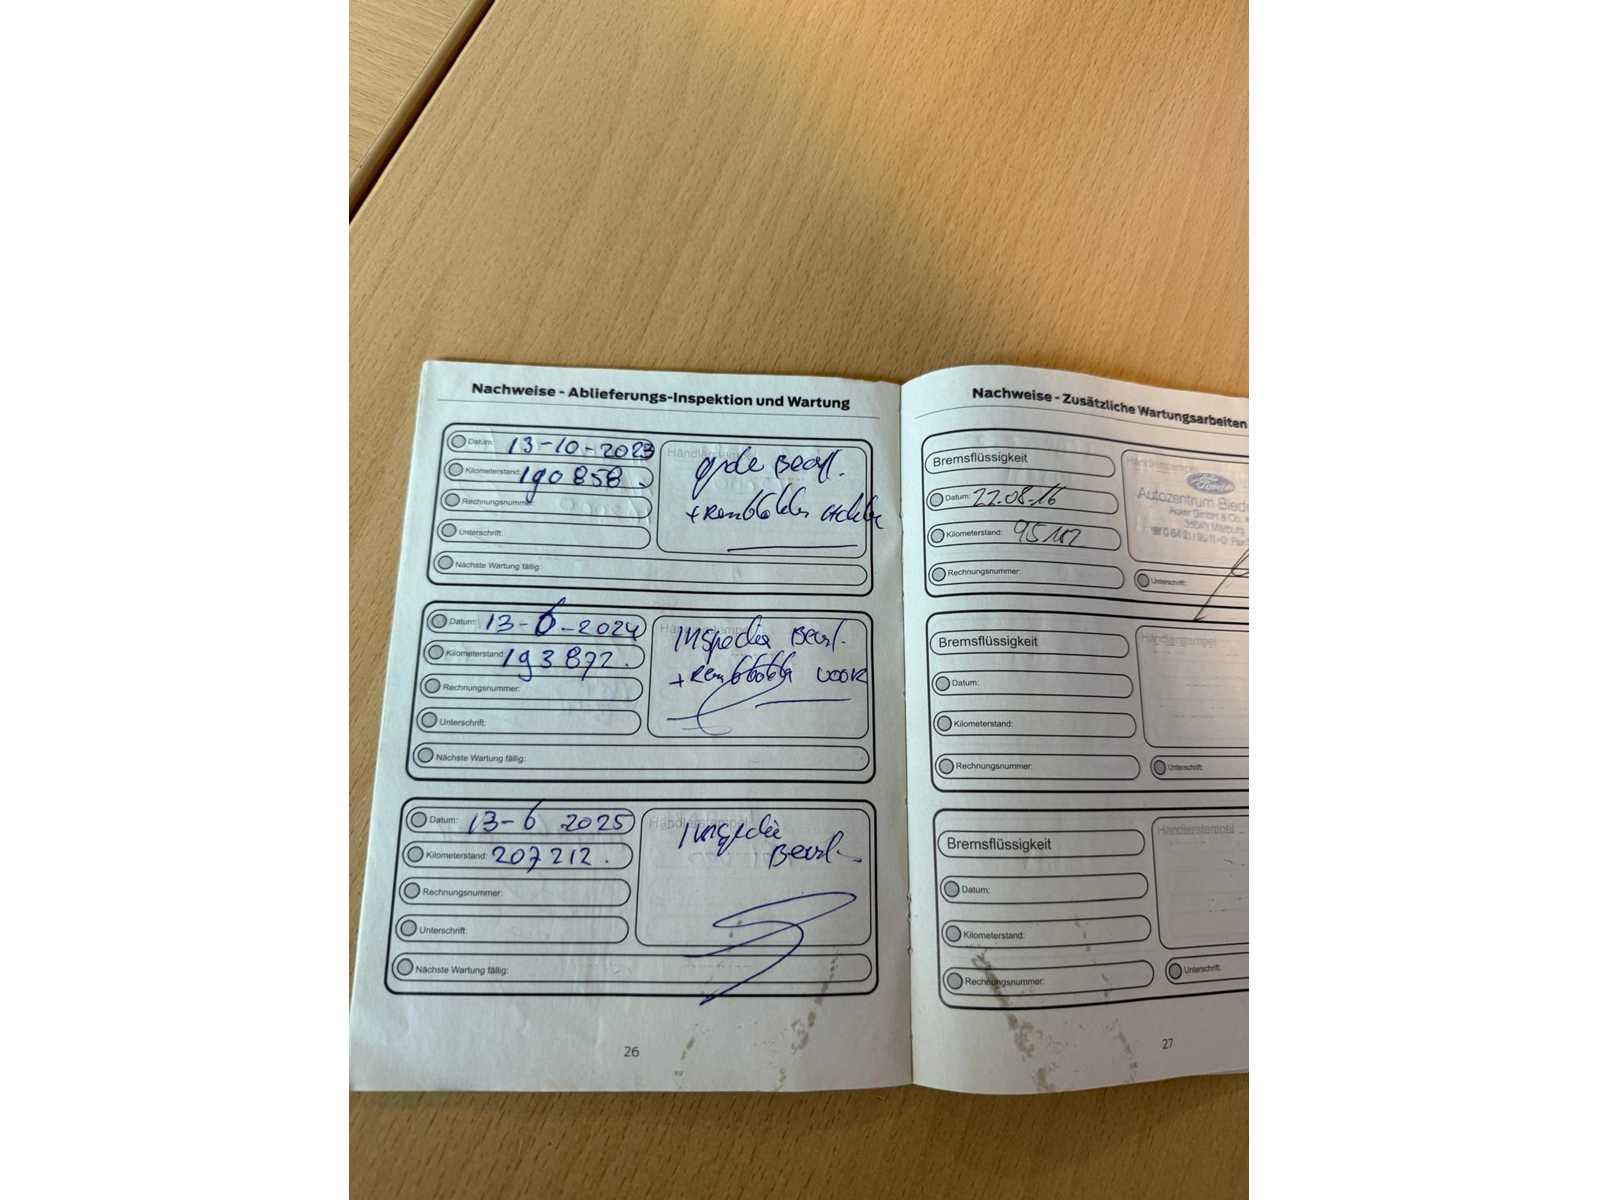 Nachweise - Ablieferungs-Inspektion und Wartung
Datum: 13-10-2023
Kilometerstand: 190858.
Rechnungsnummer:
Unterschrift:
Nächste Wartung fällig:
Händlerstempel
grote Beurt.
+ Remblokken achter
Datum: 13-6-2024
Kilometerstand: 193872.
Rechnungsnummer:
Unterschrift:
Nächste Wartung fällig:
Händlerstempel
Inspectie Beurt.
+ Remblokken voor
Datum: 13-6 2025
Kilometerstand: 207212.
Rechnungsnummer:
Unterschrift:
Nächste Wartung fällig:
Händlerstempel
Inspectie
Beurt.
26
Nachweise - Zusätzliche Wartungsarbeiten
Bremsflüssigkeit
Datum: 22.08.16
Kilometerstand: 95102
Rechnungsnummer:
Händlerstempel
Ford
Autozentrum
GmbH & Co.
Marburg
Unterschrift:
Bremsflüssigkeit
Datum:
Kilometerstand:
Rechnungsnummer:
Händlerstempel
Unterschrift:
Bremsflüssigkeit
Datum:
Kilometerstand:
Rechnungsnummer:
Händlerstempel
Unterschrift:
27